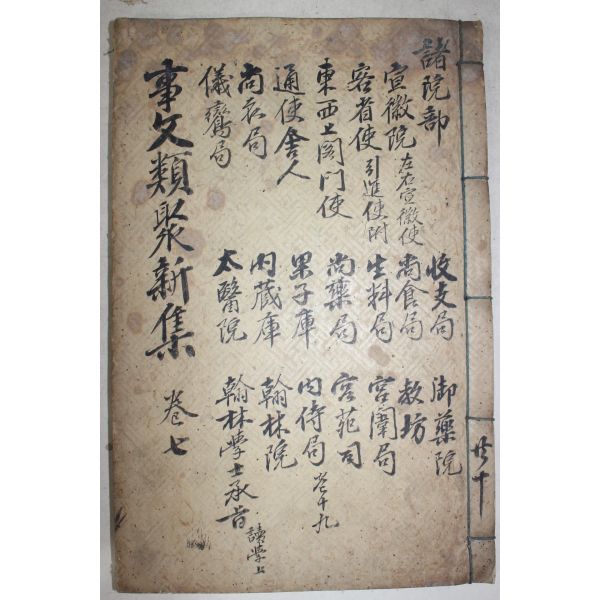 諸院部
宣徽院 左右宣徽使
客省使 引進使附
東西上閤門使
通使舍人
尚衣局
儀鸞局
收支局
尚食局
生料局
尚藥局
果子庫
内藏庫
太醫院
御藥院
教坊
宮闈局
宮苑司
内侍局 卷十九
翰林院
翰林學士承旨 讀學上
事文類聚新集 卷七